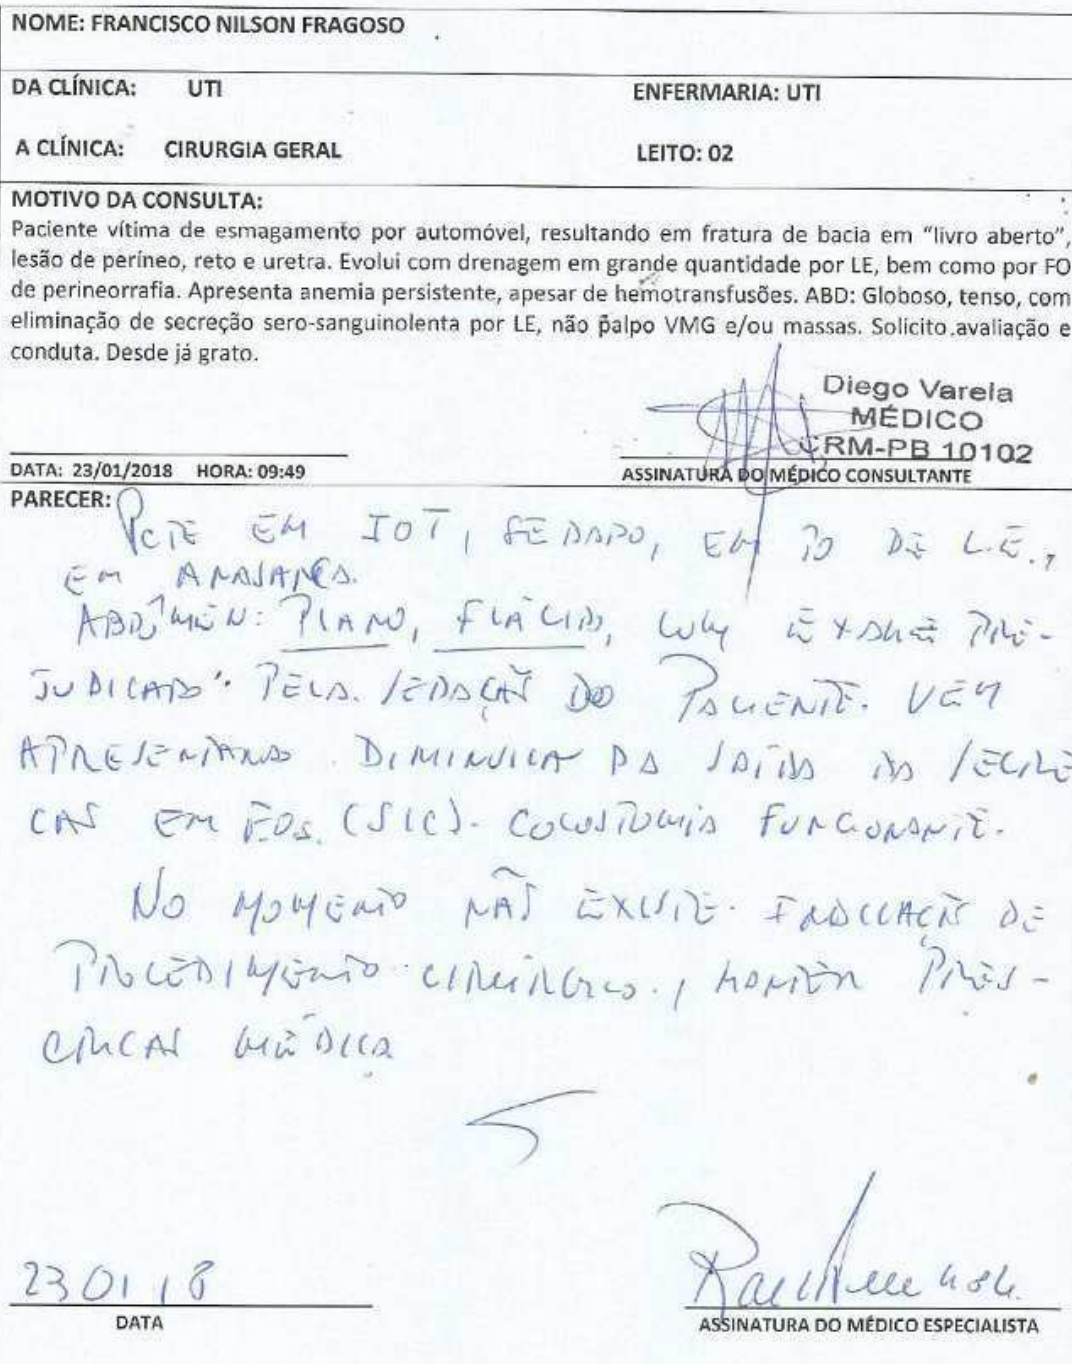 NOME: FRANCISCO NILSON FRAGOSO
DA CLÍNICA: UTI ENFERMARIA: UTI
A CLÍNICA: CIRURGIA GERAL LEITO: 02
MOTIVO DA CONSULTA:
Paciente vítima de esmagamento por automóvel, resultando em fratura de bacia em “livro aberto”,
lesão de períneo, reto e uretra. Evolui com drenagem em grande quantidade por LE, bem como por FO
de perineorrafia. Apresenta anemia persistente, apesar de hemotransfusões. ABD: Globoso, tenso, com
eliminação de secreção sero-sanguinolenta por LE, não palpo VMG e/ou massas. Solicito avaliação e
conduta. Desde já grato.
Diego Varela
MÉDICO
CRM-PB 10102
DATA: 23/01/2018 HORA: 09:49
ASSINATURA DO MÉDICO CONSULTANTE
PARECER:
PCTE EM IOT, SEDADO, EM PO DE L.E.,
EM
ABDÔMEN: PLANO, FLÁCIDO, COM EXAME PRE-
JUDICADO PELA SEDAÇÃO DO PACIENTE. VEM
APRESENTANDO DIMINUIÇÃO DA SAÍDA DA SECRE
ÇÃO EM FOs. (SIC). COLOSTOMIA FUNCIONANTE.
NO MOMENTO NÃO EXISTE INDICAÇÃO DE
PROCEDIMENTO CIRÚRGICO, MANTER PRES-
CRIÇÃO MÉDICA
23 01 18
DATA
ASSINATURA DO MÉDICO ESPECIALISTA